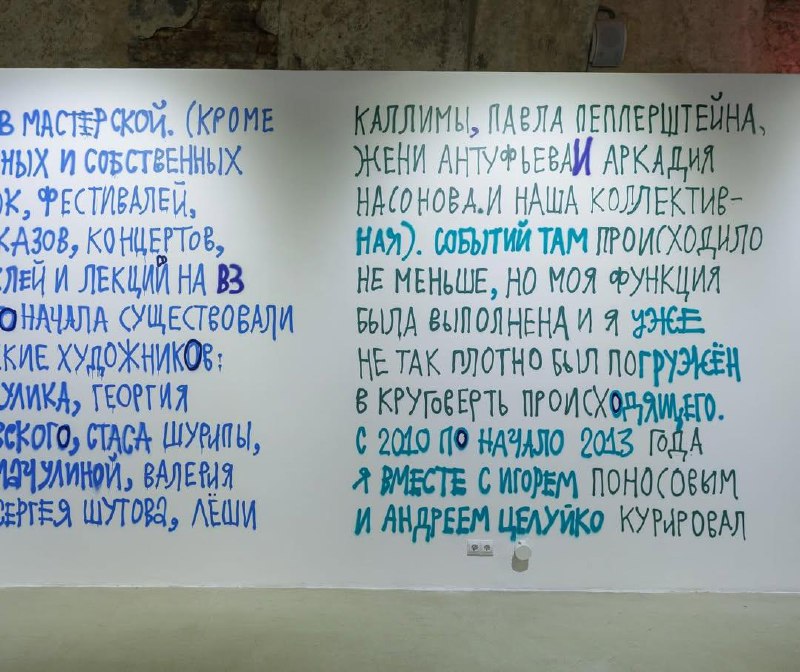 В МАСТЕРСКОЙ. (КРОМЕ
НЫХ И СОБСТВЕННЫХ
ОК, ФЕСТИВАЛЕЙ,
КАЗОВ, КОНЦЕРТОВ,
ЛЕЙ И ЛЕКЦИЙ НА ВЗ
О НАЧАЛА СУЩЕСТВОВАЛИ
КИЕ ХУДОЖНИКОВ:
УЛИКА, ГЕОРГИЯ
ВСКОГО, СТАСА ШУРИПЫ,
МАЧУЛИНОЙ, ВАЛЕРИЯ
СЕРГЕЯ ШУТОВА, ЛЁШИ
КАЛЛИМЫ, ПАВЛА ПЕППЕРШТЕЙНА,
ЖЕНИ АНТУФЬЕВА И АРКАДИЯ
НАСОНОВА. И НАША КОЛЛЕКТИВ-
НАЯ). СОБЫТИЙ ТАМ ПРОИСХОДИЛО
НЕ МЕНЬШЕ, НО МОЯ ФУНКЦИЯ
БЫЛА ВЫПОЛНЕНА И Я УЖЕ
НЕ ТАК ПЛОТНО БЫЛ ПОГРУЖЁН
В КРУГОВЕРТЬ ПРОИСХОДЯЩЕГО.
С 2010 ПО НАЧАЛО 2013 ГОДА
Я ВМЕСТЕ С ИГОРЕМ ПОНОСОВЫМ
И АНДРЕЕМ ЦЕЛУЙКО КУРИРОВАЛ